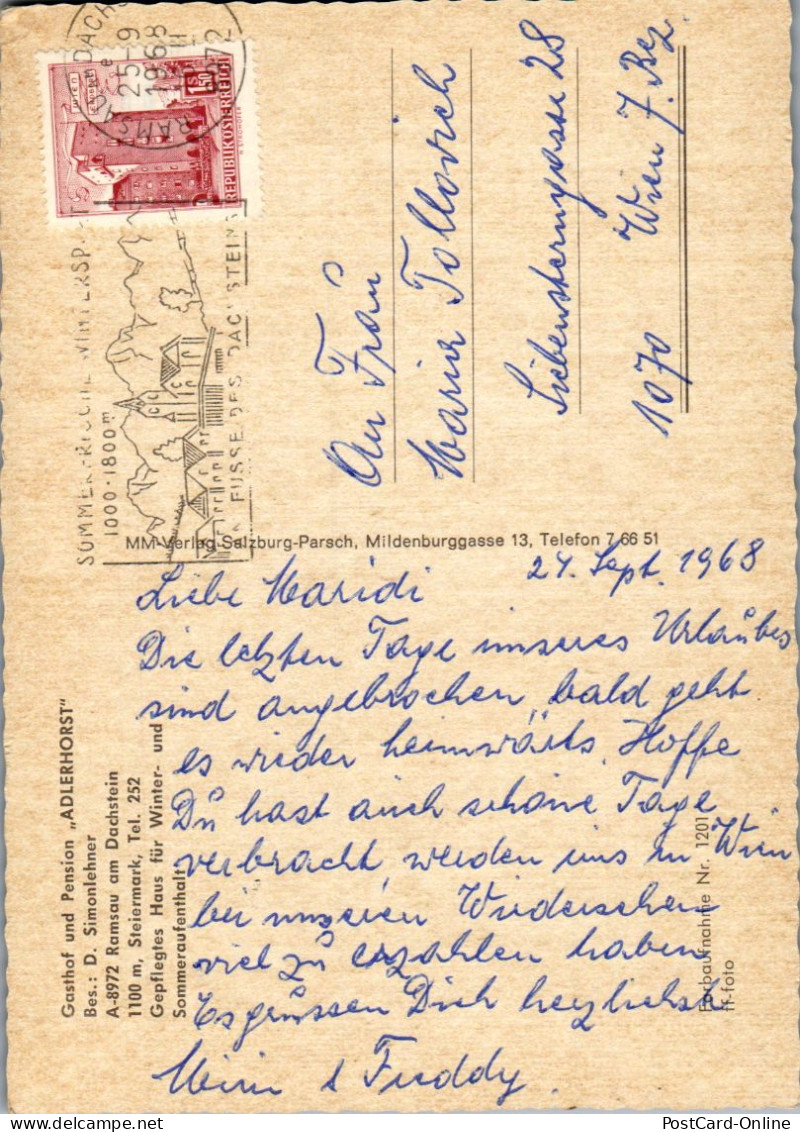 Gasthof und Pension „ADLERHORST"
Bes.: D. Simonlehner
A-8972 Ramsau am Dachstein
1100 m, Steiermark, Tel. 252
Gepflegtes Haus für Winter- und
Sommeraufenthalt
24. Sept. 1968
Liebe Maridi
Die letzten Tage unseres Urlaubes
sind angebrochen, bald geht
es wieder heimwärts. Hoffe
Du hast auch schöne Tage
verbracht, werden uns in Wien
bei unseren Wiedersehen
viel zu erzählen haben
Es grüssen Dich herzlichst
Mimi & Freddy.
Farbaufnahme Nr. 1201
ff-foto
MM-Verlag Salzburg-Parsch, Mildenburggasse 13, Telefon 7 66 51
SOMMERFRISCHE WINTERSPORT
1000-1800m
AM FUSSE DES DACHSTEINS
RAMSAU DACHS
25-9
1968
8972
WIEN
ERDBERG
1.50
REPUBLIK ÖSTERREICH
An Frau
Maria Tollovich
Siebensterngasse 28
Wien 7. Bez.
1070
PostCard-Online
www.delcampe.net